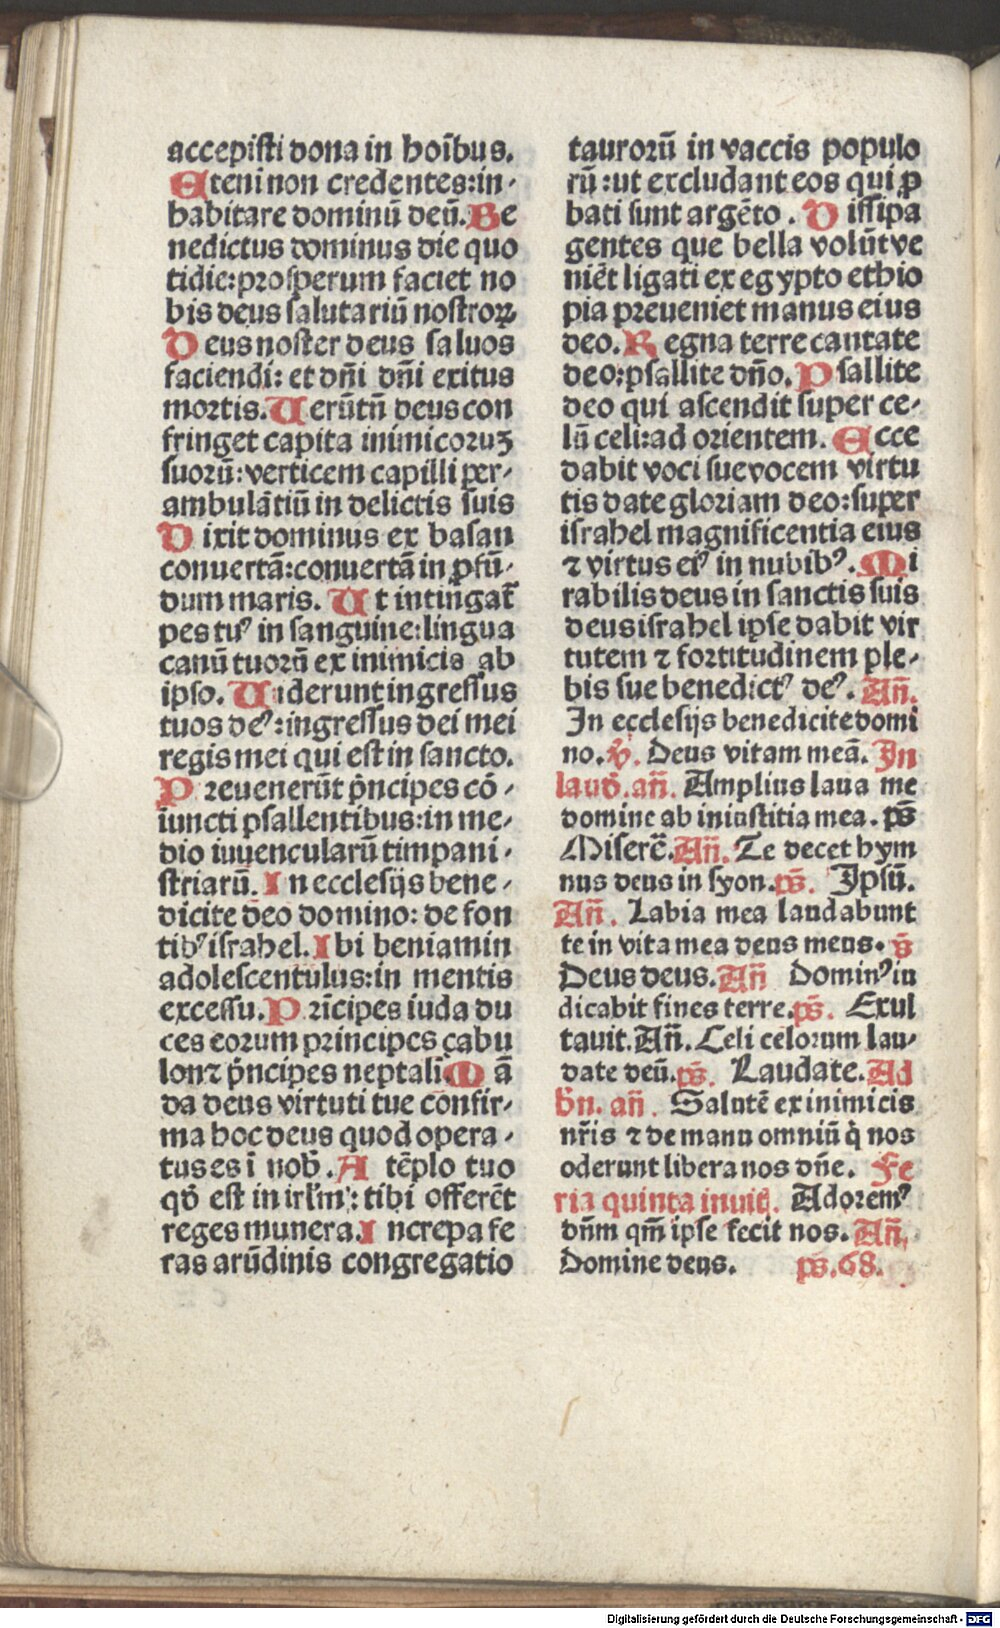 accepisti dona in hoĩbus.
Eteni non credentes:in-
habitare dominũ deũ. Be
nedictus dominus die quo
tidie:prosperum faciet no
bis deus salutariũ nostroꝝ
Deus noster deus saluos
faciendi: et dñi dñi exitus
mortis. Uerũtñ deus con
fringet capita inimicoruꝫ
suorũ:verticem capilli ꝑer-
ambulãtiũ in delictis suis
Dixit dominus ex basan
conuertã:conuertã in ꝓfũ-
dum maris. Ut intingat̃
pes tuꝰ in sanguine:lingua
canũ tuorũ ex inimicis ab
ipso. Uiderunt ingressus
tuos deꝰ:ingressus dei mei
regis mei qui est in sancto.
Preuenerũt pñcipes cõ-
iuncti psallentibus:in me-
dio iuuencularũ timpani-
striarũ. In ecclesijs bene-
dicite deo domino: de fon
tibꝰ israhel. Ibi beniamin
adolescentulus:in mentis
excessu. Prĩcipes iuda du
ces eorum principes zabu
lon ⁊ pñcipes neptali. Mã
da deus virtuti tue confir-
ma hoc deus quod opera-
tus es ĩ nob̃. A tẽplo tuo
qð est in irl̃m: tibi offerẽt
reges munera. Increpa fe
ras arũdinis congregatio
taurorũ in vaccis populo
rũ:ut excludant eos qui ꝓ
bati sunt argẽto. Dissipa
gentes que bella volũt ve
niẽt ligati ex egypto ethio
pia preueniet manus eius
deo. Regna terre cantate
deo:psallite dño. Psallite
deo qui ascendit super ce-
lũ celi:ad orientem. Ecce
dabit voci sue vocem virtu
tis date gloriam deo:super
israhel magnificentia eius
⁊ virtus eiꝰ in nubibꝰ. Mi
rabilis deus in sanctis suis
deus israhel ipse dabit vir
tutem ⁊ fortitudinem ple-
bis sue benedictꝰ deꝰ. Añ.
In ecclesijs benedicite domi
no. ℣. Deus vitam meã. In
laud̃. añ. Amplius laua me
domine ab iniustitia mea. ps̃
Miserẽ. Añ. Te decet hym
nus deus in syon. ps̃. Ipsũ.
Añ. Labia mea laudabunt
te in vita mea deus meus. ps̃
Deus deus. Añ Dominꝰ iu
dicabit fines terre. ps̃. Exul
tauit. Añ. Celi celorum lau-
date deũ. ps̃. Laudate. Ad
bñ. añ. Salutẽ ex inimicis
nr̃is ⁊ de manu omniũ q̃ nos
oderunt libera nos dñe. Fe
ria quinta inuit̃. Adoremꝰ
dñm qm̃ ipse fecit nos. Añ.
Domine deus. ps̃. 68.
Digitalisierung gefördert durch die Deutsche Forschungsgemeinschaft - DFG